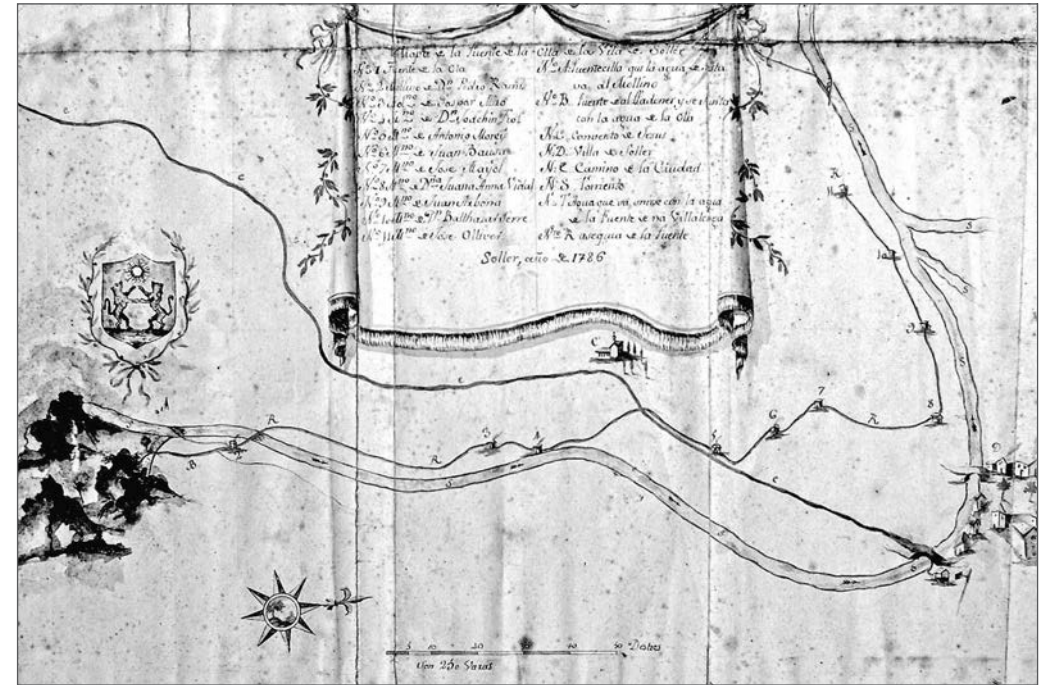 Mapa de la Fuente de la Olla de la Villa de Soller
Nº 1 Fuente de la Ola
Nº 2 Molino de Dn Pedro
Nº 3 Mno de Gaspar
Nº 4 Mno de Dn Joachin
Nº 5 Mno de Antonio Morey
Nº 6 Mno de Juan Bausa
Nº 7 Mno de Jose Mayol
Nº 8 Mno de Dña Juana Anna Vidal
Nº 9 Mno de Juan Arbona
Nº 10 Mno de Balthasar Serre
Nº 11 Mno de Jose Olliver
Nº A fuentecilla qui la agua de esta
va al Mollino
Nº B fuente de al Lladoner y se junta
con la agua de la Ola
Nº C Convento de Jesus
N. D. Villa de Soller
N. E. Camino de la Ciudad
N. S. Torrente
Nº T Agua que va, con la agua
de la Fuente de na Villalonga
Nº R asequia de la fuente
Soller, año de 1786
e
e
e
e
C
A
B
R
2
R
3
4
S
S
S
5
6
7
R
8
9
10
11
R
S
S
S
S
S
D
5 10 20 30 40 50 Destres
Son 250 Varas